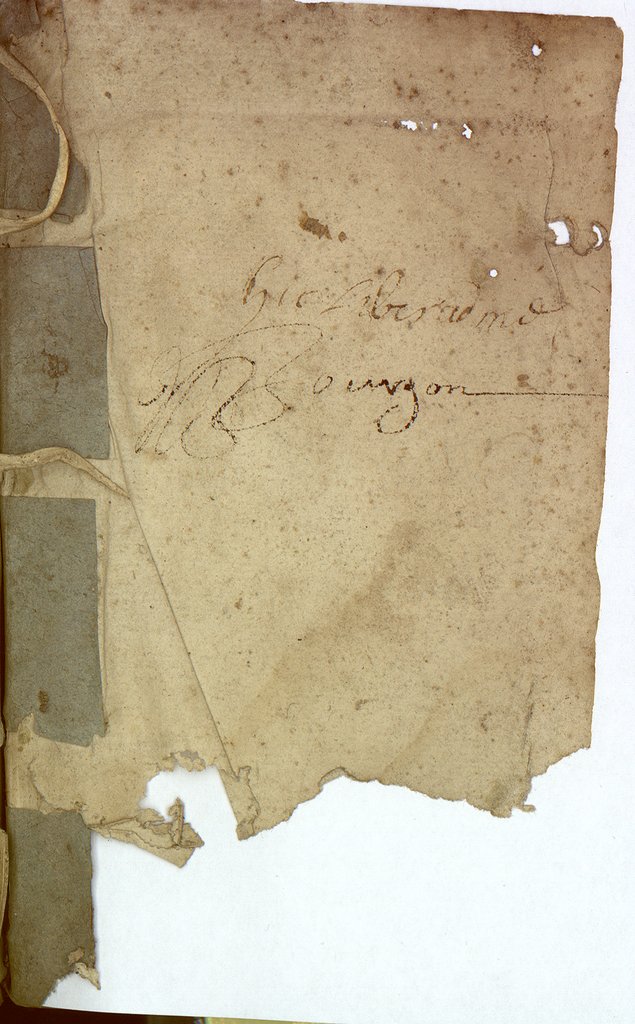 hic liber ad me
Bourgon